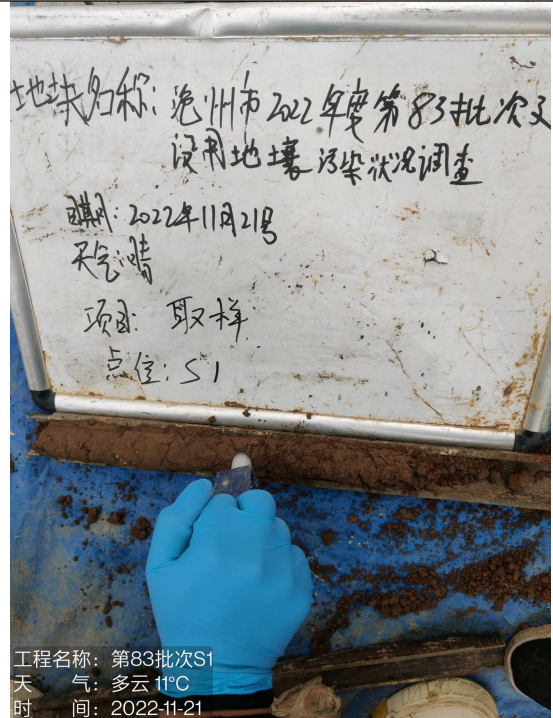 地块名称：沧州市2022年度第83批次建
设用地土壤污染状况调查
日期：2022年11月21号
天气：晴
项目：取样
点位：S1
工程名称：第83批次S1
天 气：多云 11°C
时 间：2022-11-21